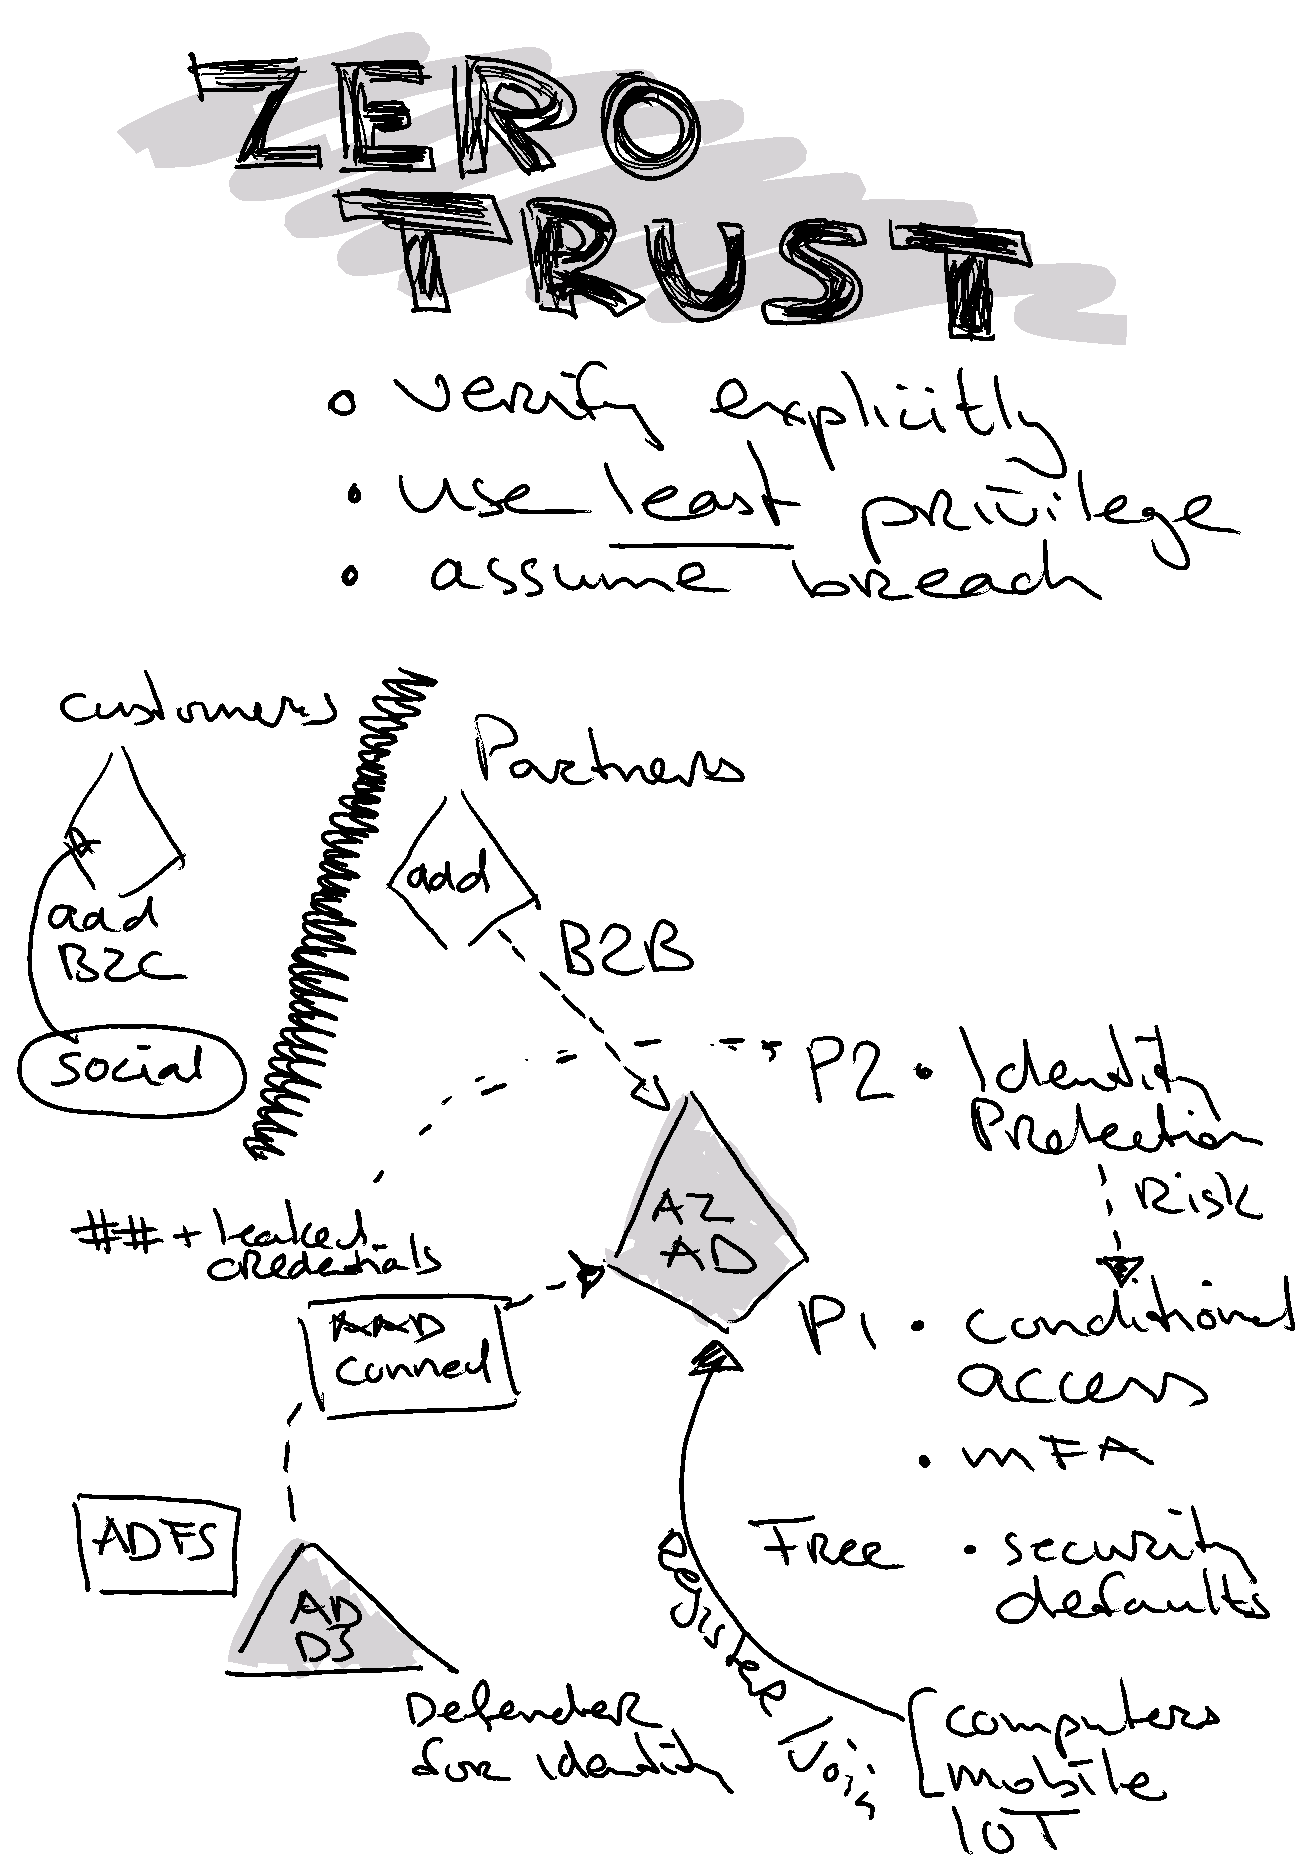 ZERO
TRUST
verify explicitly
use least privilege
assume breach
customers
Partners
aad
aad
B2C
B2B
social
P2 • Identity
Protection
Risk
## + leaked
credentials
AZ
AD
AAD
connect
P1 • conditional
access
• MFA
ADFS
Free • security
defaults
AD
DS
Register/Join
Defender
for identity
computers
mobile
IOT